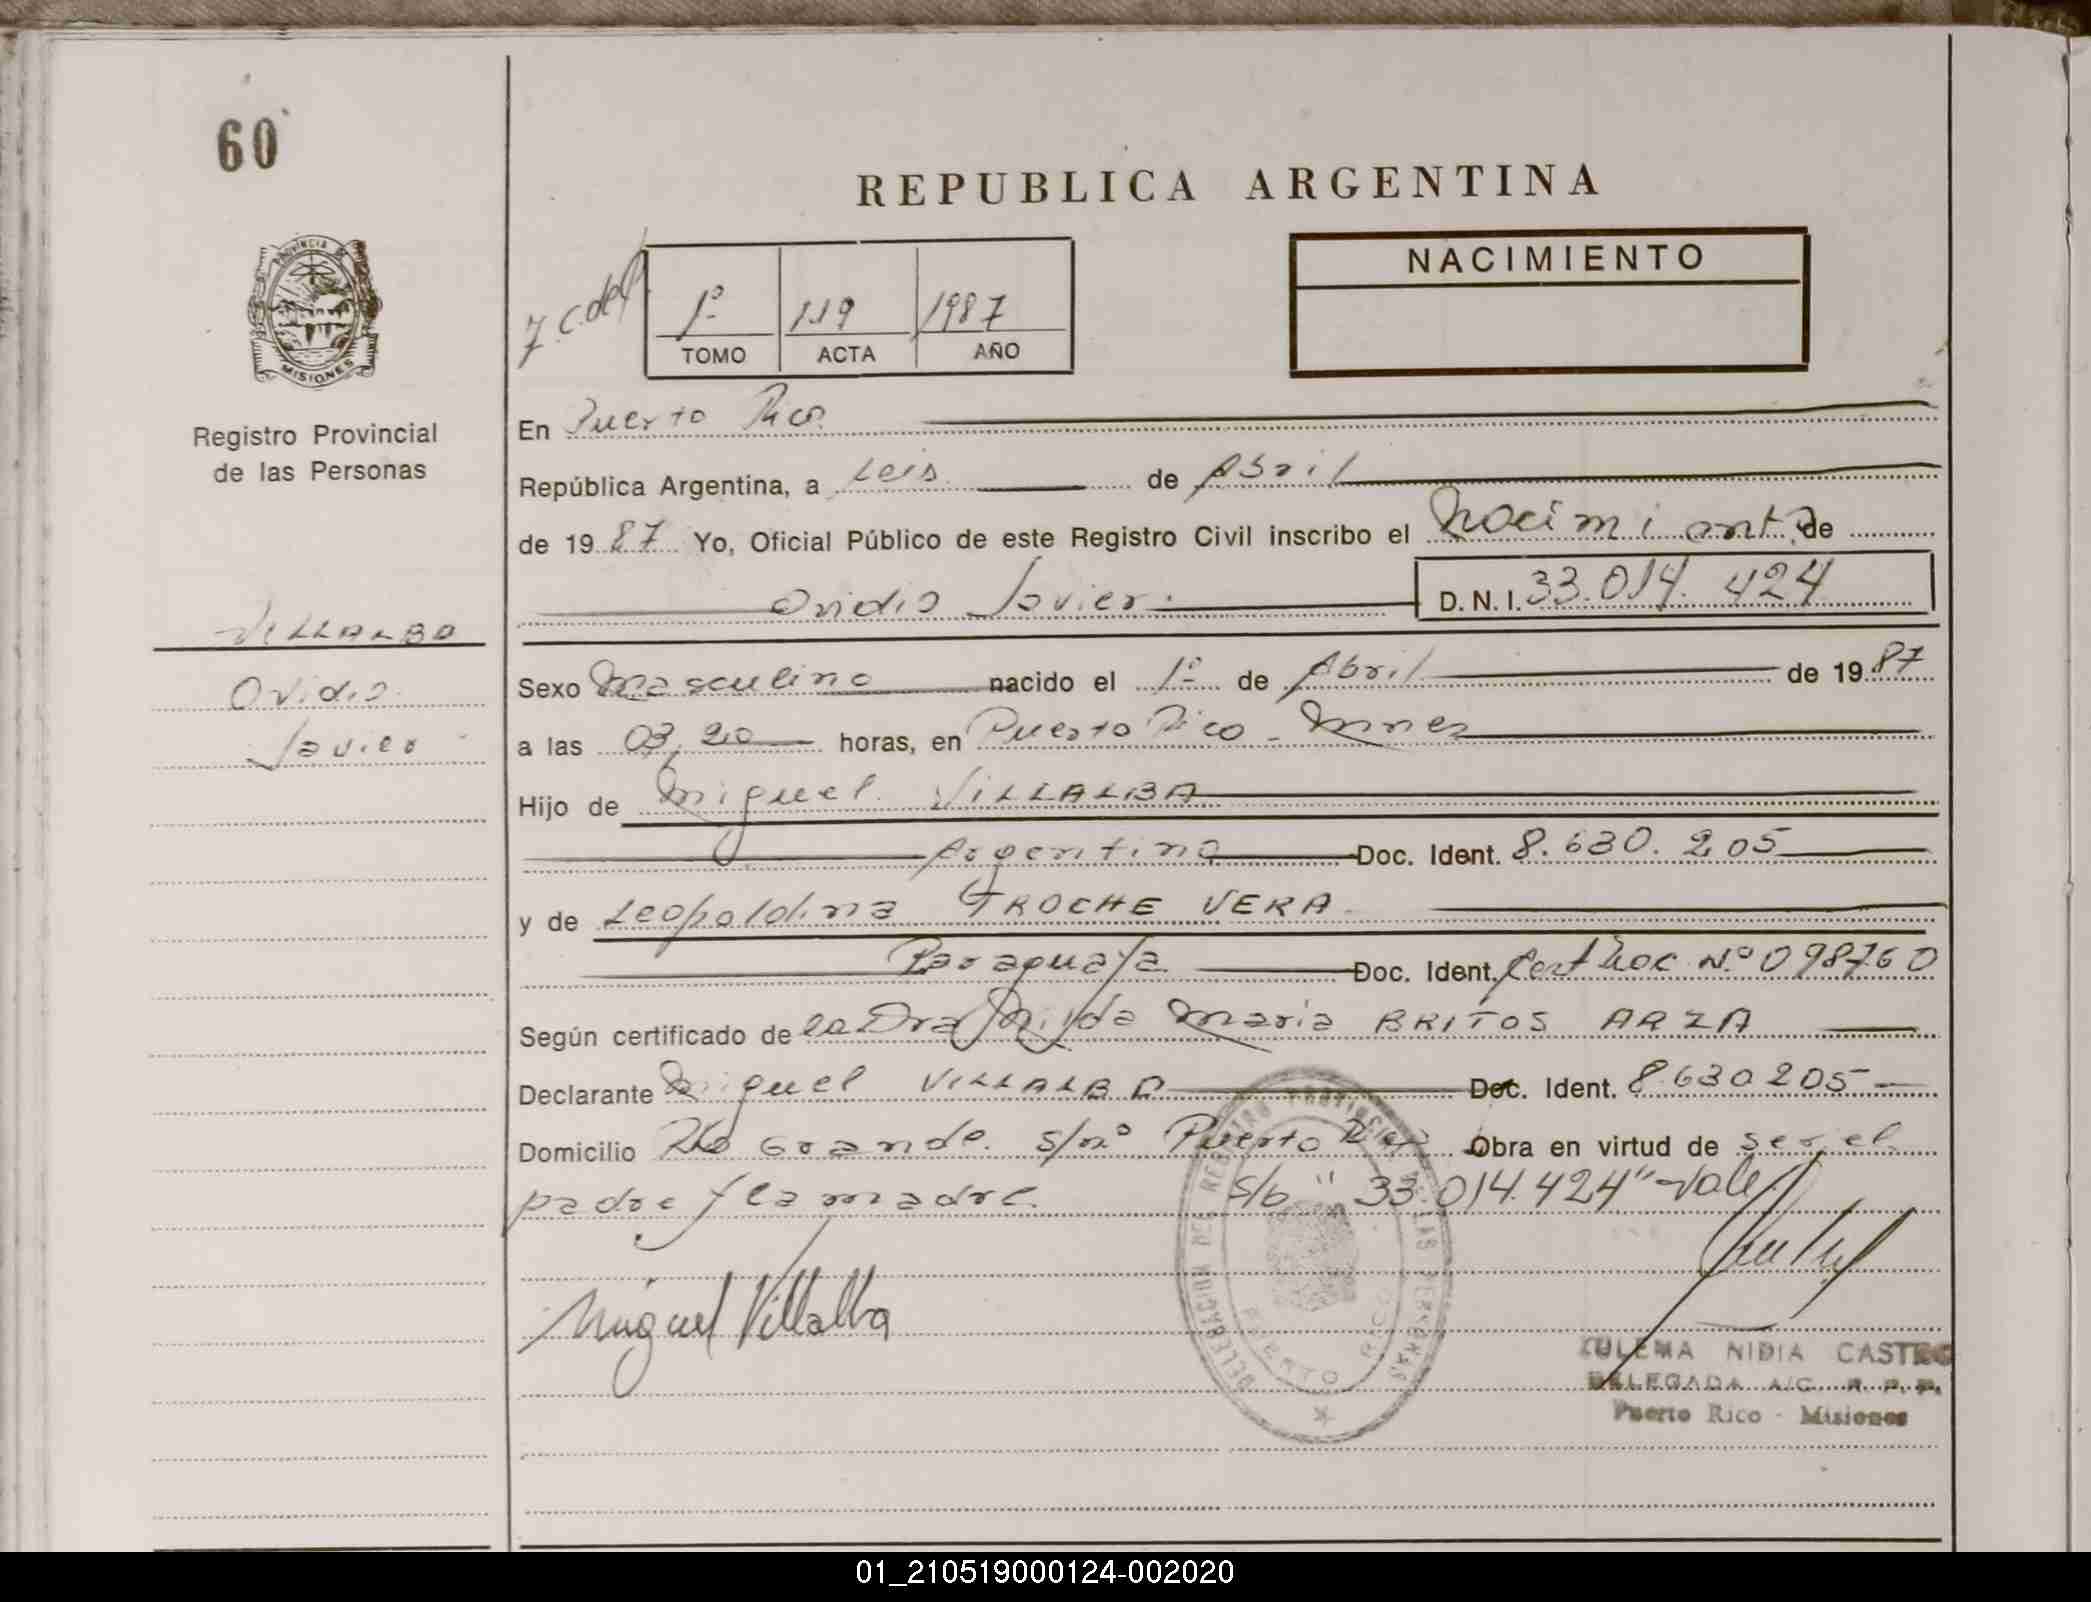 60
REPUBLICA ARGENTINA
NACIMIENTO
7 c. del
1º 119 1987
TOMO ACTA AÑO
PROVINCIA DE MISIONES
Registro Provincial
de las Personas
VILLALBA
Ovidio
Javier
En Puerto Rico
República Argentina, a seis de Abril
de 1987 Yo, Oficial Público de este Registro Civil inscribo el Nacimiento de
Ovidio Javier. D.N.I. 33.014.424
Sexo Masculino nacido el 1º de Abril de 1987
a las 03,20 horas, en Puerto Rico - Mnes
Hijo de Miguel VILLALBA
Argentino Doc. Ident. 8.630.205
y de Leopoldina TROCHE VERA
Paraguaya Doc. Ident. Nº 098760
Según certificado de la Dra Nilda Maria BRITOS ARZA
Declarante Miguel VILLALBA Doc. Ident. 8.630205
Domicilio Rio Grande s/nº Puerto Rico Obra en virtud de ser el
padre y la madre. S/b "33.014.424" Vale
Miguel Villalba
DELEGACION DEL REGISTRO PROVINCIAL DE LAS PERSONAS
PUERTO RICO
ZULEMA NIDIA CASTRO
DELEGADA A/C. R. P. P.
Puerto Rico - Misiones
01_210519000124-002020